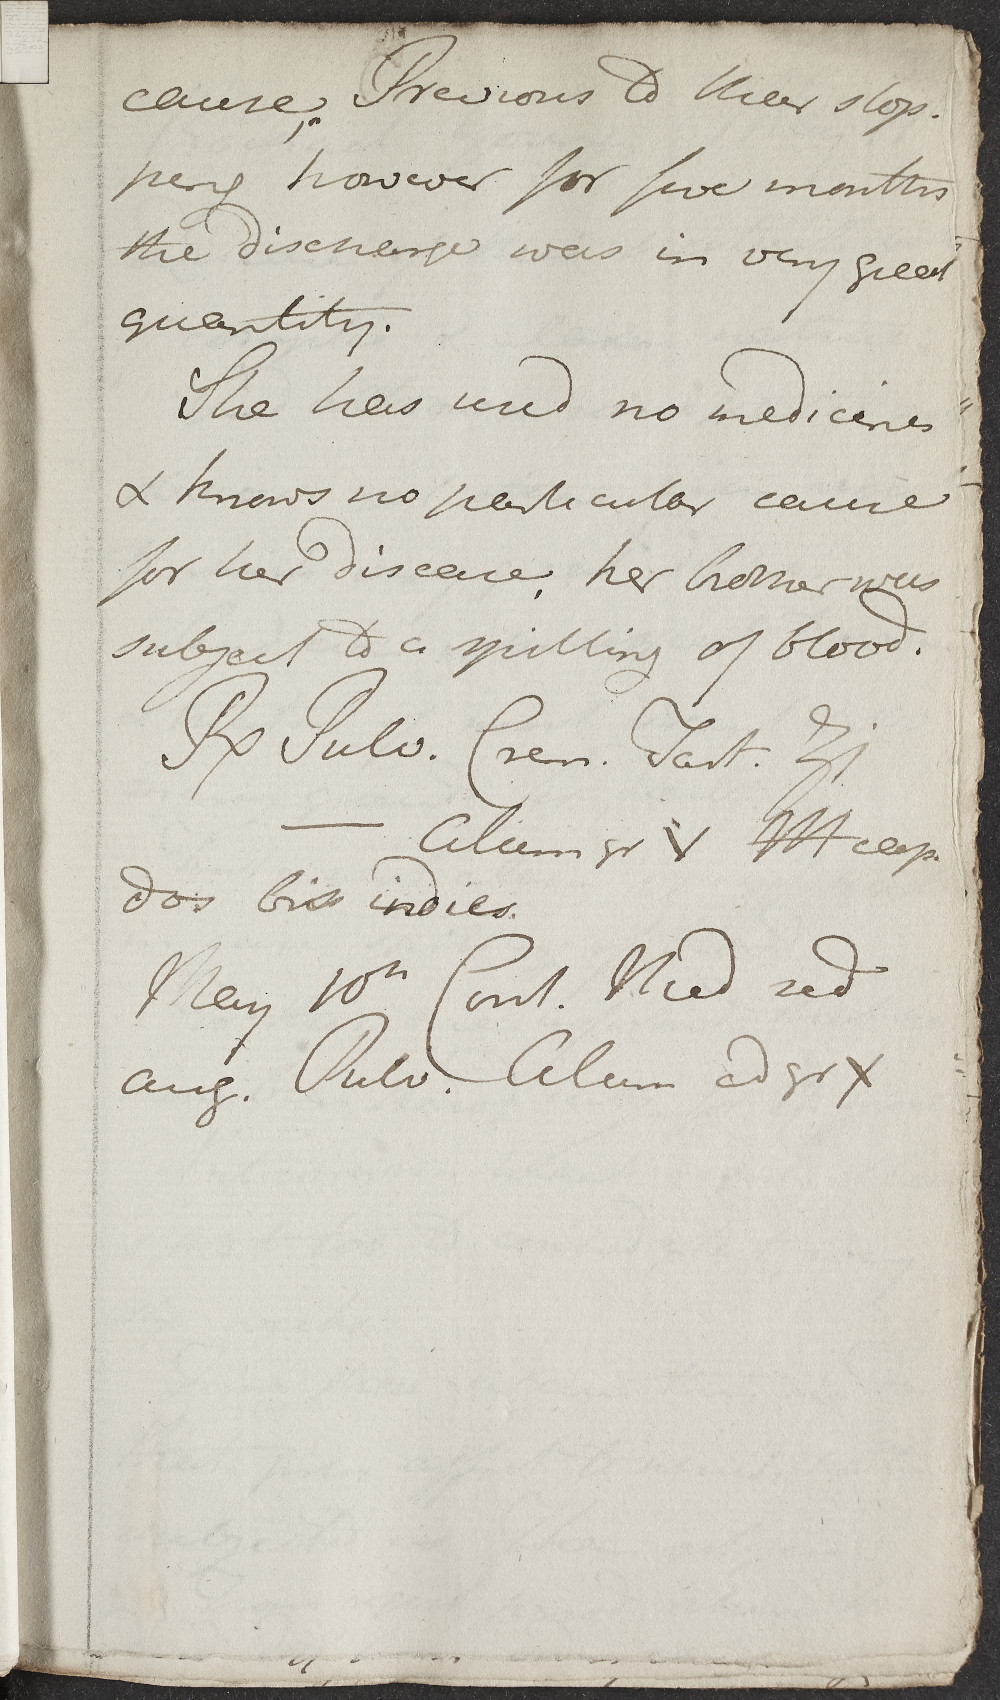 cause. Previous to their stop-
ping however for five months
the discharge was in very great
quantity.
She has used no medicines
& knows no particular cause
for her disease, her brother was
subject to a spitting of blood.
Rx Pulv. Crem. Tart. ʒj
— Alum gr V M cap
dos bis indies.
May 10th Cont. Med sed
aug. Pulv. Alum ad gr X